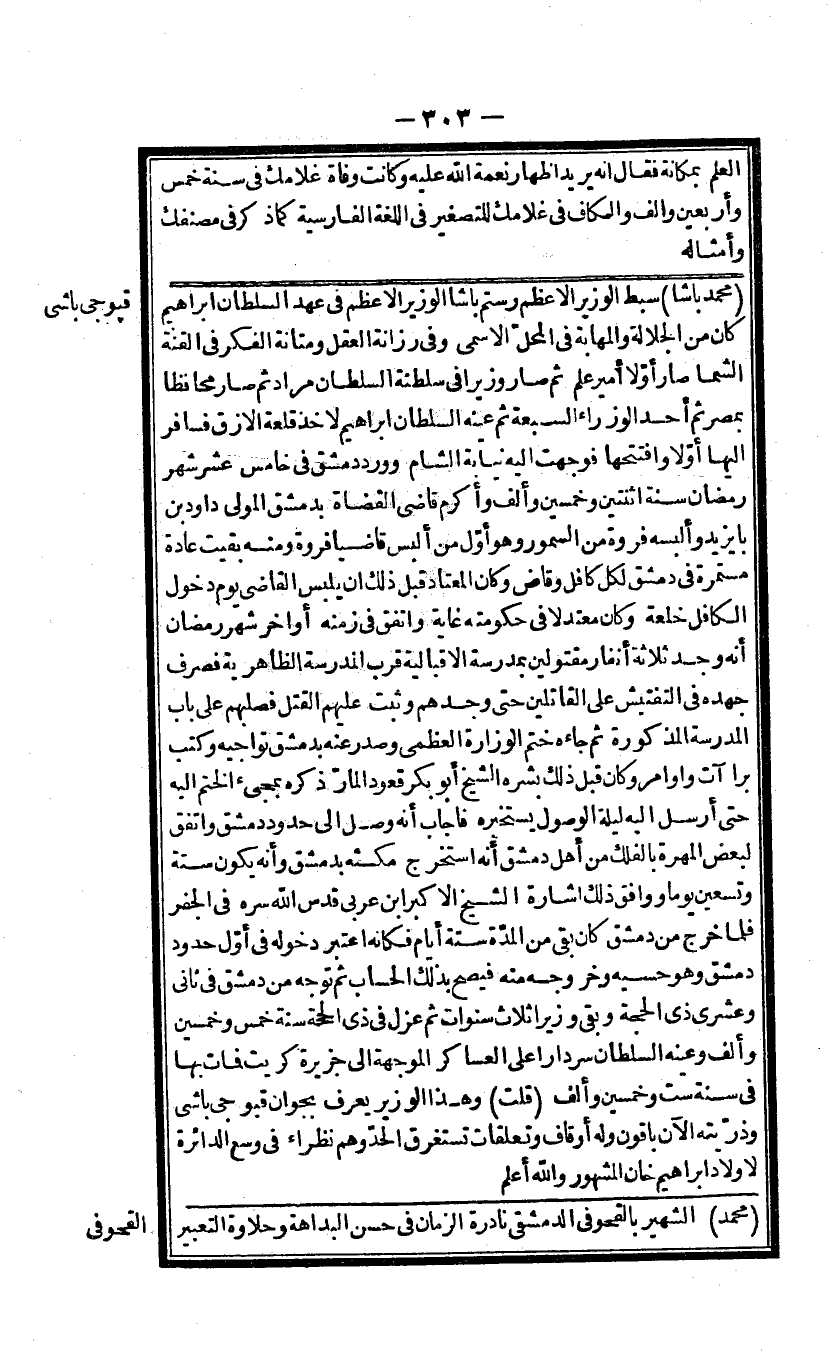 — ٣٠٣ —
العلم بمكانة فقال انه يريد اظهار نعمة الله عليه وكانت وفاة غلامك فى سنة خمس
وأربعين وألف والكاف فى غلامك للتصغير فى اللغة الفارسية كما ذكر فى مصنفك
وأمثاله
قبوجى باشى
(محمد باشا) سبط الوزير الاعظم رستم باشا الوزير الاعظم فى عهد السلطان ابراهيم
كان من الجلالة والمهابة فى المحل الاسمى وفى رزانة العقل ومتانة الفكر فى القنة
الشما صار أوّلا أمير علم ثم صار وزيرا فى سلطنة السلطان مراد ثم صار محافظا
بمصر ثم أحد الوزراء السبعة ثم عينه السلطان ابراهيم لاخذ قلعة الازق فسافر
اليها أوّلا وافتتحها فوجهت اليه نيابة الشام وورد دمشق فى خامس عشر شهر
رمضان سنة اثنتين وخمسين وألف وأكرم قاضى القضاة بدمشق المولى داود بن
بايزيد وألبسه فروة من السمور وهو أوّل من ألبس قاضيا فروة ومنه بقيت عادة
مستمرة فى دمشق لكل كافل وقاض وكان المعتاد قبل ذلك ان يلبس القاضى يوم دخول
الكافل خلعة وكان معتدلا فى حكومته غاية واتفق فى زمنه أواخر شهر رمضان
أنه وجد ثلاثة أنفار مقتولين بمدرسة الاقبالية قرب المدرسة الظاهرية فصرف
جهده فى التفتيش على القاتلين حتى وجدهم وثبت عليهم القتل فصلبهم على باب
المدرسة المذكورة ثم جاءه ختم الوزارة العظمى وصدر عنه بدمشق تواجيه وكتب
برا آت وأوامر وكان قبل ذلك بشره الشيخ أبو بكر قعود المارّ ذكره بمجىء الختم اليه
حتى أرسل اليه ليلة الوصول يستخبره فاجاب أنه وصل الى حدود دمشق واتفق
لبعض المهرة بالفلك من أهل دمشق أنه استخرج مكثه بدمشق وأنه يكون ستة
وتسعين يوما ووافق ذلك اشارة الشيخ الاكبر ابن عربى قدس الله سره فى الجفر
فلما خرج من دمشق كان بقى من المدّة ستة أيام فكانه اعتبر دخوله فى أوّل حدود
دمشق وهو حسبه وخروجه منه فيصح بذلك الحساب ثم توجه من دمشق فى ثانى
وعشرى ذى الحجة وبقى وزيرا ثلاث سنوات ثم عزل فى ذى الحجة سنة خمس وخمسين
وألف وعينه السلطان سردارا على العساكر الموجهة الى جزيرة كريت فمات بها
فى سنة ست وخمسين وألف (قلت) وهذا الوزير يعرف بجوان قبوجى باشى
وذرّيته الآن باقون وله أوقاف وتعلقات تستغرق الحدّ وهم نظراء فى وسع الدائرة
لاولاد ابراهيم خان المشهور والله أعلم
القحوفى
(محمد) الشهير بالقحوفى الدمشقى نادرة الزمان فى حسن البداهة وحلاوة التعبير